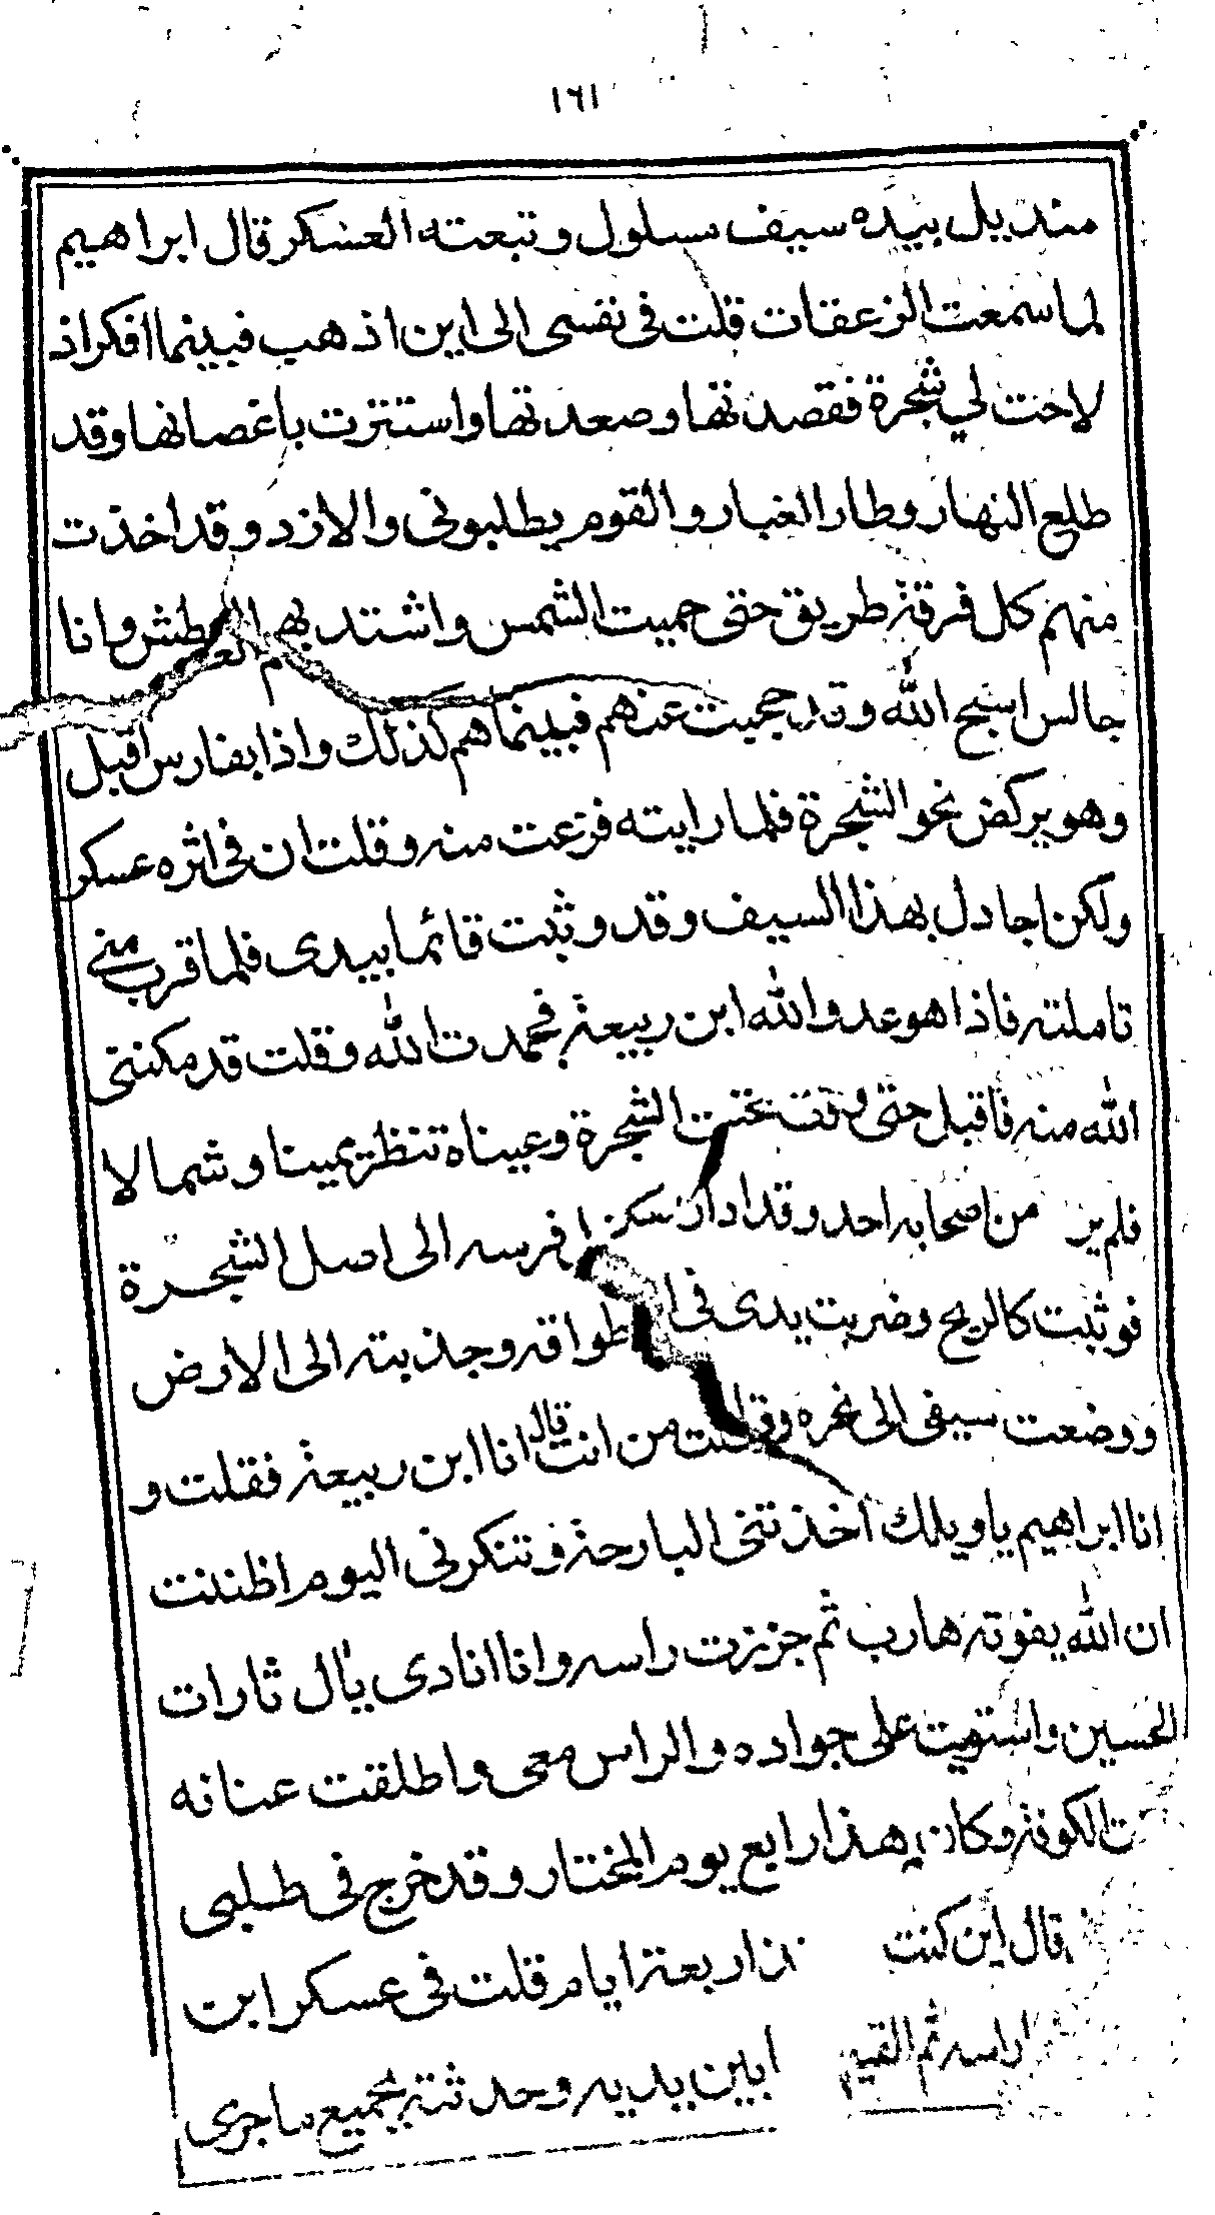 ١٦١
منديل بيده سيف مسلول وتبعته العسكر قال ابراهيم
لما سمعت الزعقات قلت فى نفسى الى اين اذهب فبينما افكر اذ
لاحت لي شجرة فقصدتها وصعدتها واستترت باغصانها وقد
طلع النهار وطار الغبار والقوم يطلبونى والازد وقد اخذت
منهم كل فرقة طريق حتى حميت الشمس واشتد بهم العطش وانا
جالس اسبح الله وقد حجبت عنهم فبينما هم كذلك واذا بفارس اقبل
وهو يركض نحو الشجرة فلما رايته فزعت منه وقلت ان فى اثره عسكر
ولكن اجادل بهذا السيف وقد وثبت قائما بيدى فلما قرب مني
تاملته فاذا هو عدو الله ابن ربيعة فحمدت الله وقلت قد مكننى
الله منه فاقبل حتى وقف تحت الشجرة وعيناه تنظر يمينا وشمالا
فلم ير من اصحابه احد وقد ادار فرسه الى اصل الشجرة
فوثبت كالريح وضربت يدى فى اطواقه وجذبته الى الارض
ووضعت سيفى الى نحره وقلت من انت قال انا ابن ربيعة فقلت و
انا ابراهيم يا ويلك اخذتنى البارحة وتنكرنى اليوم اظننت
ان الله يفوته هارب ثم جززت راسه وانا انادى يال ثارات
الحسين واستويت على جواده والراس معى واطلقت عنانه
الكوفة وكان هذا رابع يوم المختار وقد خرج فى طلبى
قال اين كنت اربعة ايام قلت فى عسكر ابن
راسه ثم القيه ابين يديه وحدثته بجميع ماجرى